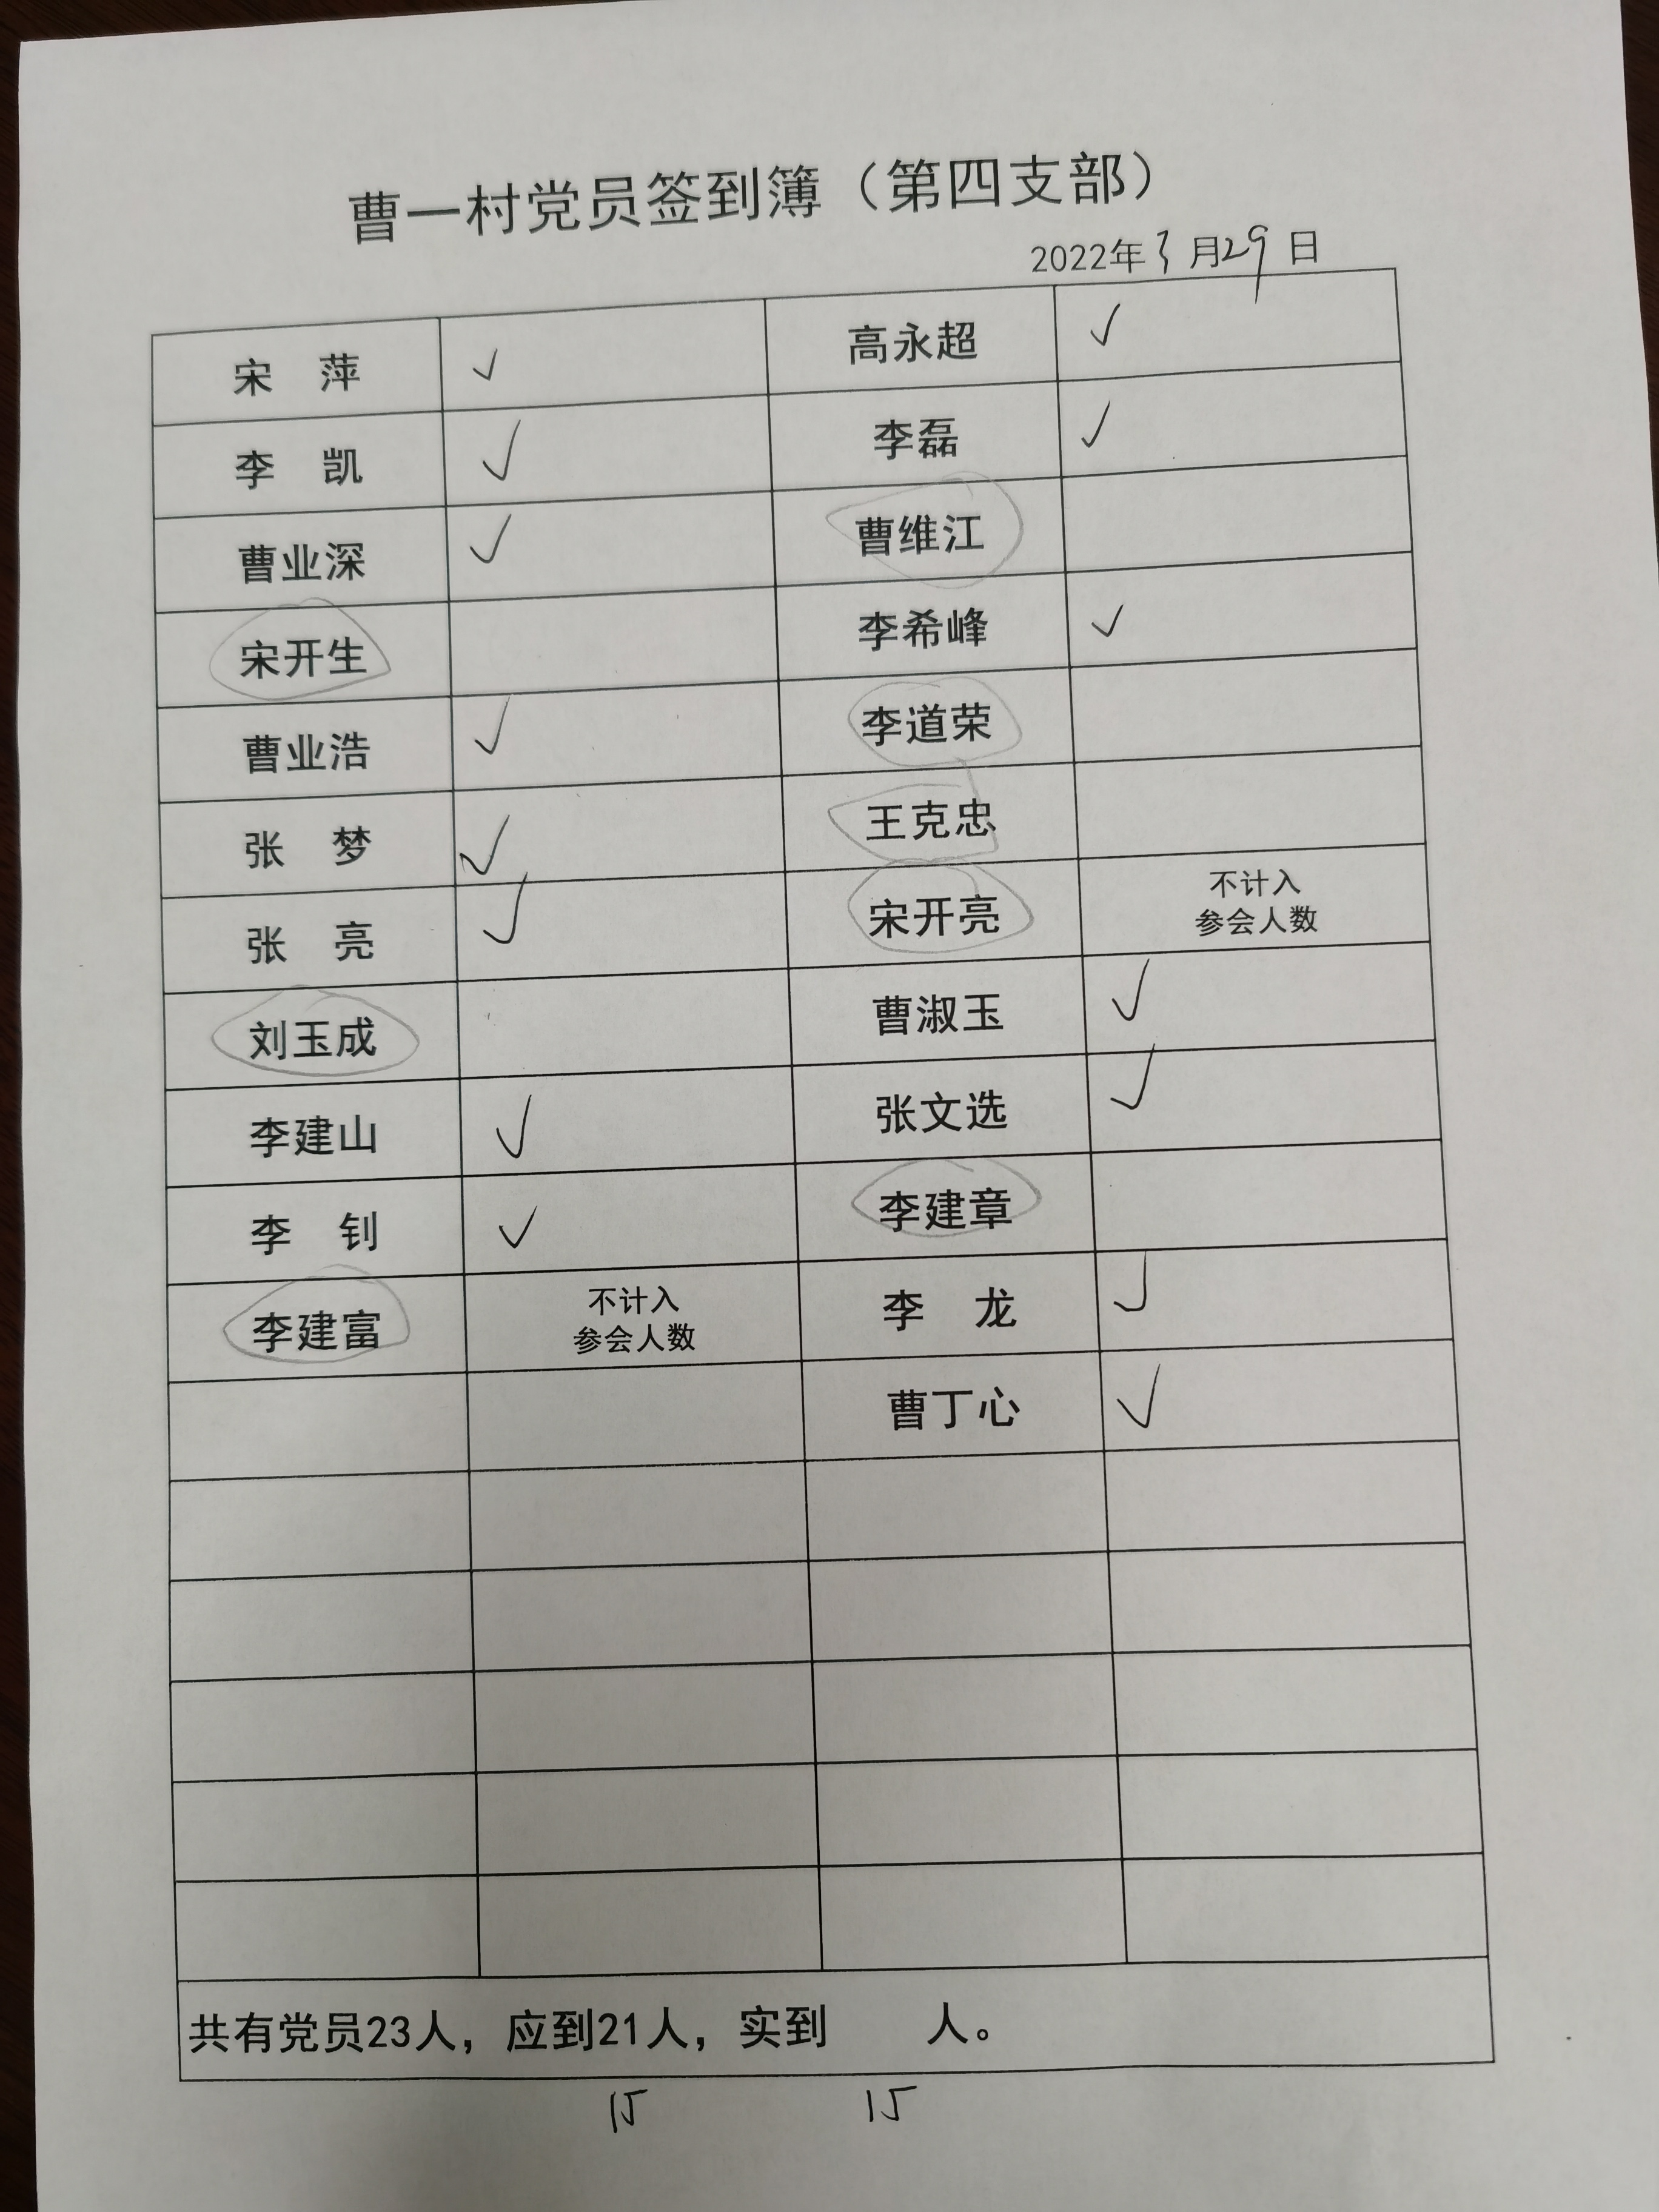 曹一村党员签到簿（第四支部）
2022年3月29日
宋　萍 ✓ 高永超 ✓
李　凯 ✓ 李磊 ✓
曹业深 ✓ 曹维江
宋开生 李希峰 ✓
曹业浩 ✓ 李道荣
张　梦 ✓ 王克忠
张　亮 ✓ 宋开亮 不计入
参会人数
刘玉成 曹淑玉 ✓
李建山 ✓ 张文选 ✓
李　钊 ✓ 李建章
李建富 不计入
参会人数
李　龙 ✓
曹丁心 ✓
共有党员23人，应到21人，实到　　人。
15 15